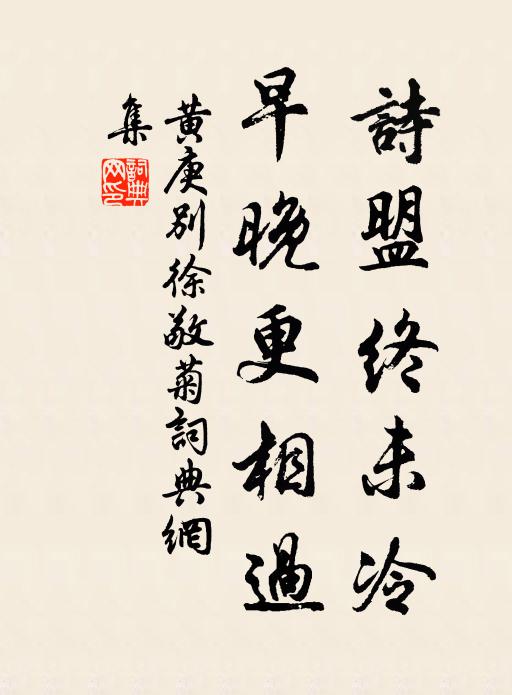 詩盟終未冷
早晚更相過
黄庚別徐敬菊詞典網
集
詞典
网印